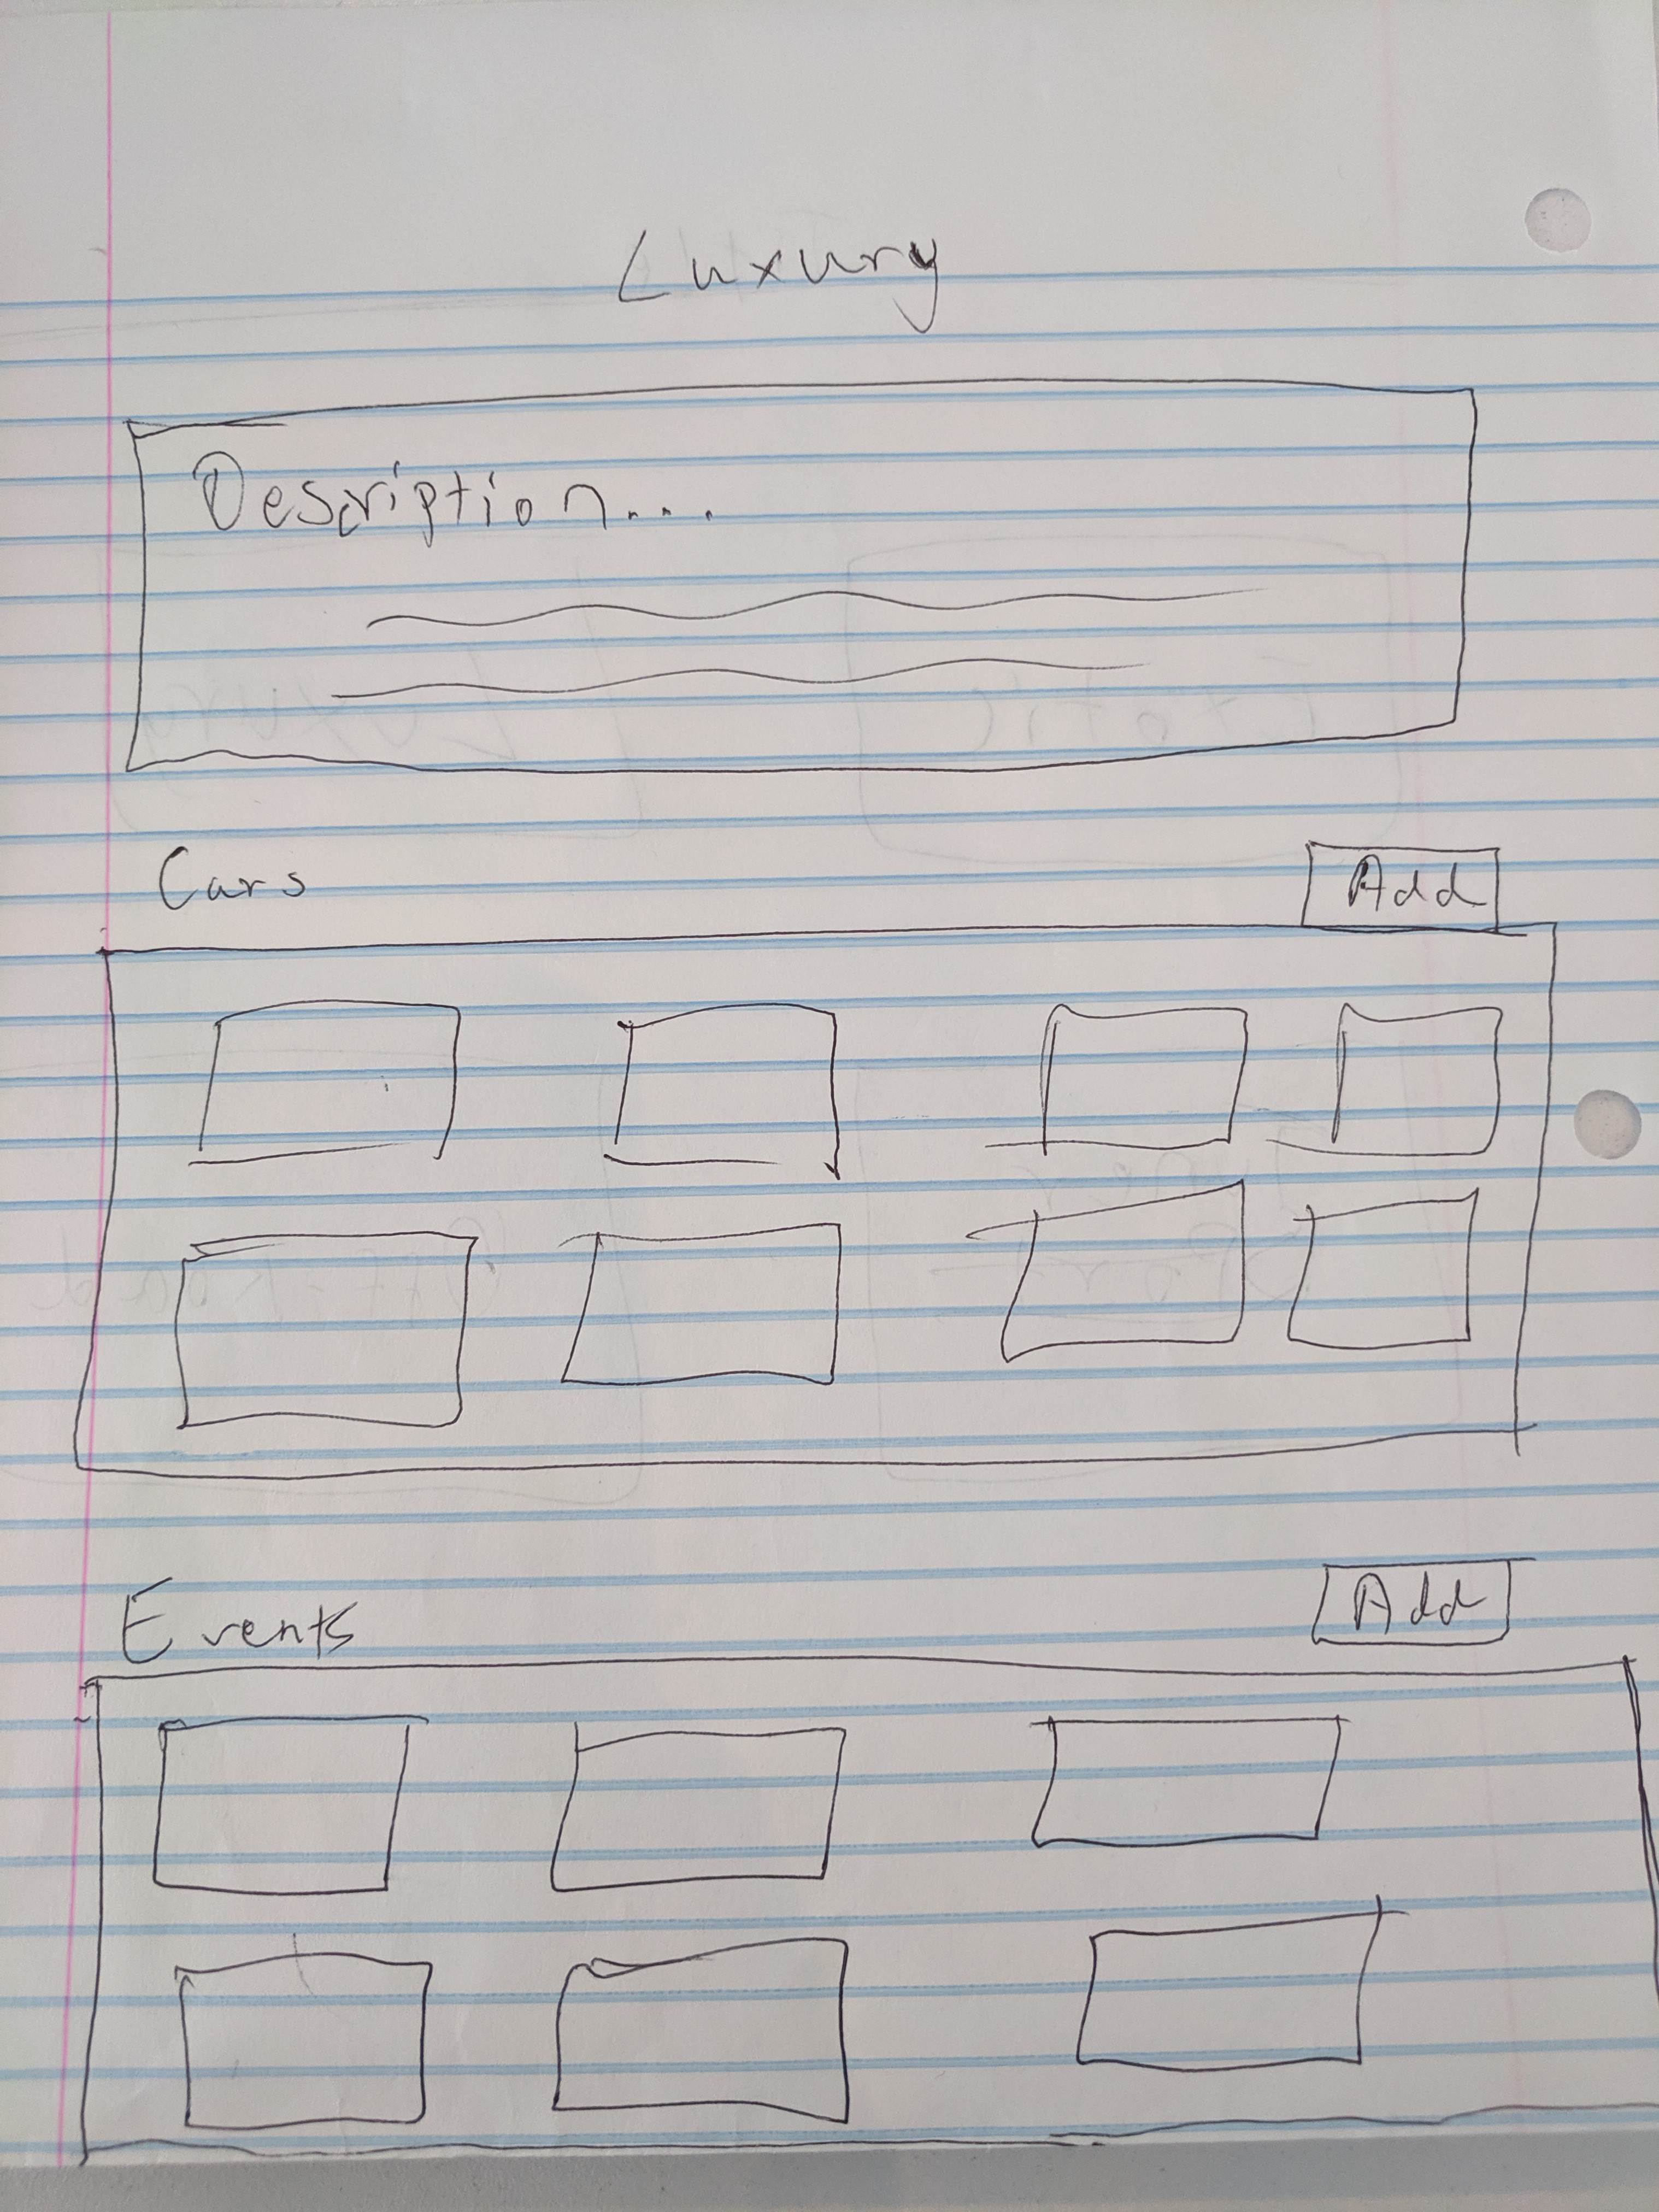 Luxury
Description...
Cars
Add
Events
Add